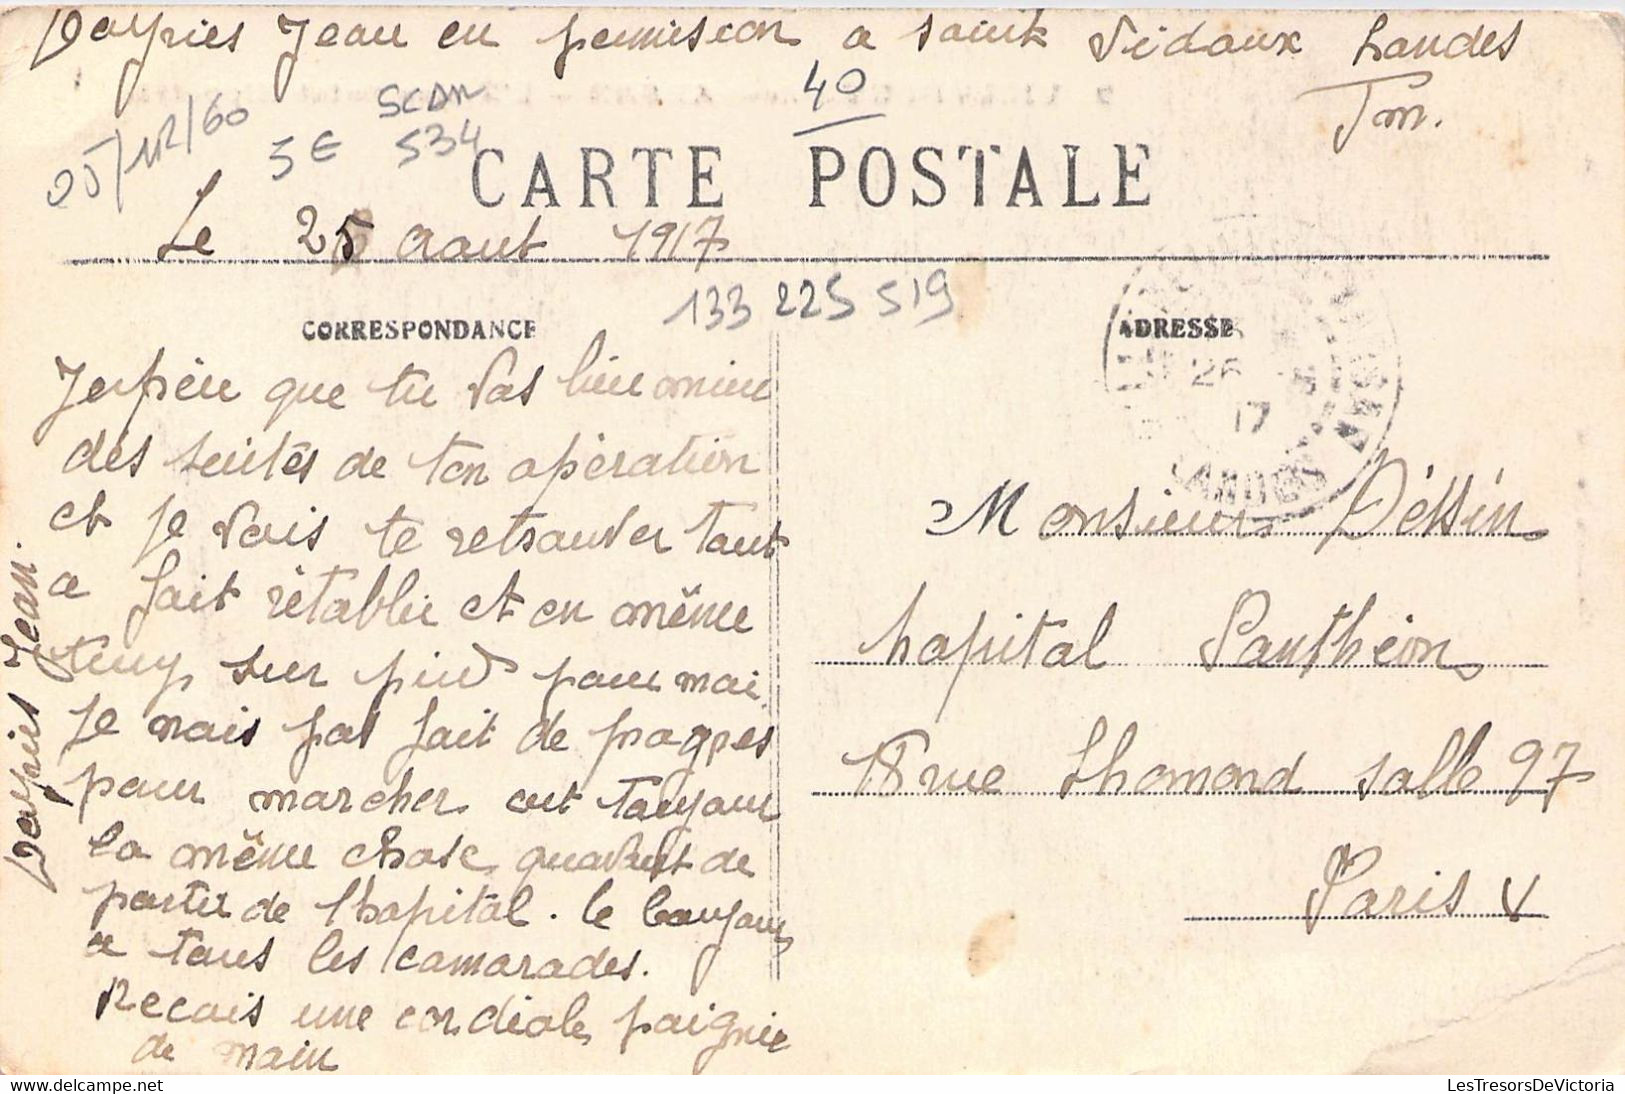 Dayries Jean en permision a saint Vidaux Landes
Tm.
25/112/60
3€
SCAN
534
40
CARTE POSTALE
Le 25 Aout 1917
133 225 519
CORRESPONDANCE
ADRESSE
26
17
LANDES
Jespéru que tu vas bieu mieu
des suités de ton opération
et je vais te retrouver tout
a fait rétablie et en même
temp sur pied pour moi
Je mais pas fait de progres
pour marcher cet toujour
la même chose quavent de
partir de lhopital. le bonjour
a tous les camarades.
Recois une cordiale paignie
de main
Dayries Jean.
Monsieur Déssin
hopital Panthéon
18 rue Lhomond salle 97
Paris V
LesTresorsDeVictoria